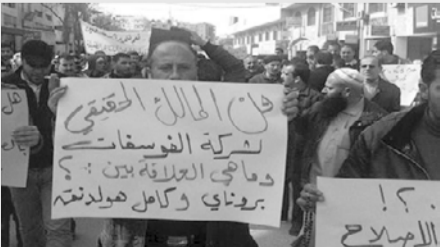 من المالك الحقيقي
لشركة الفوسفات
وماهي العلاقة بين : ؟
بروناي وكامل هولدنغ
هل
؟ . !
الاصلاح